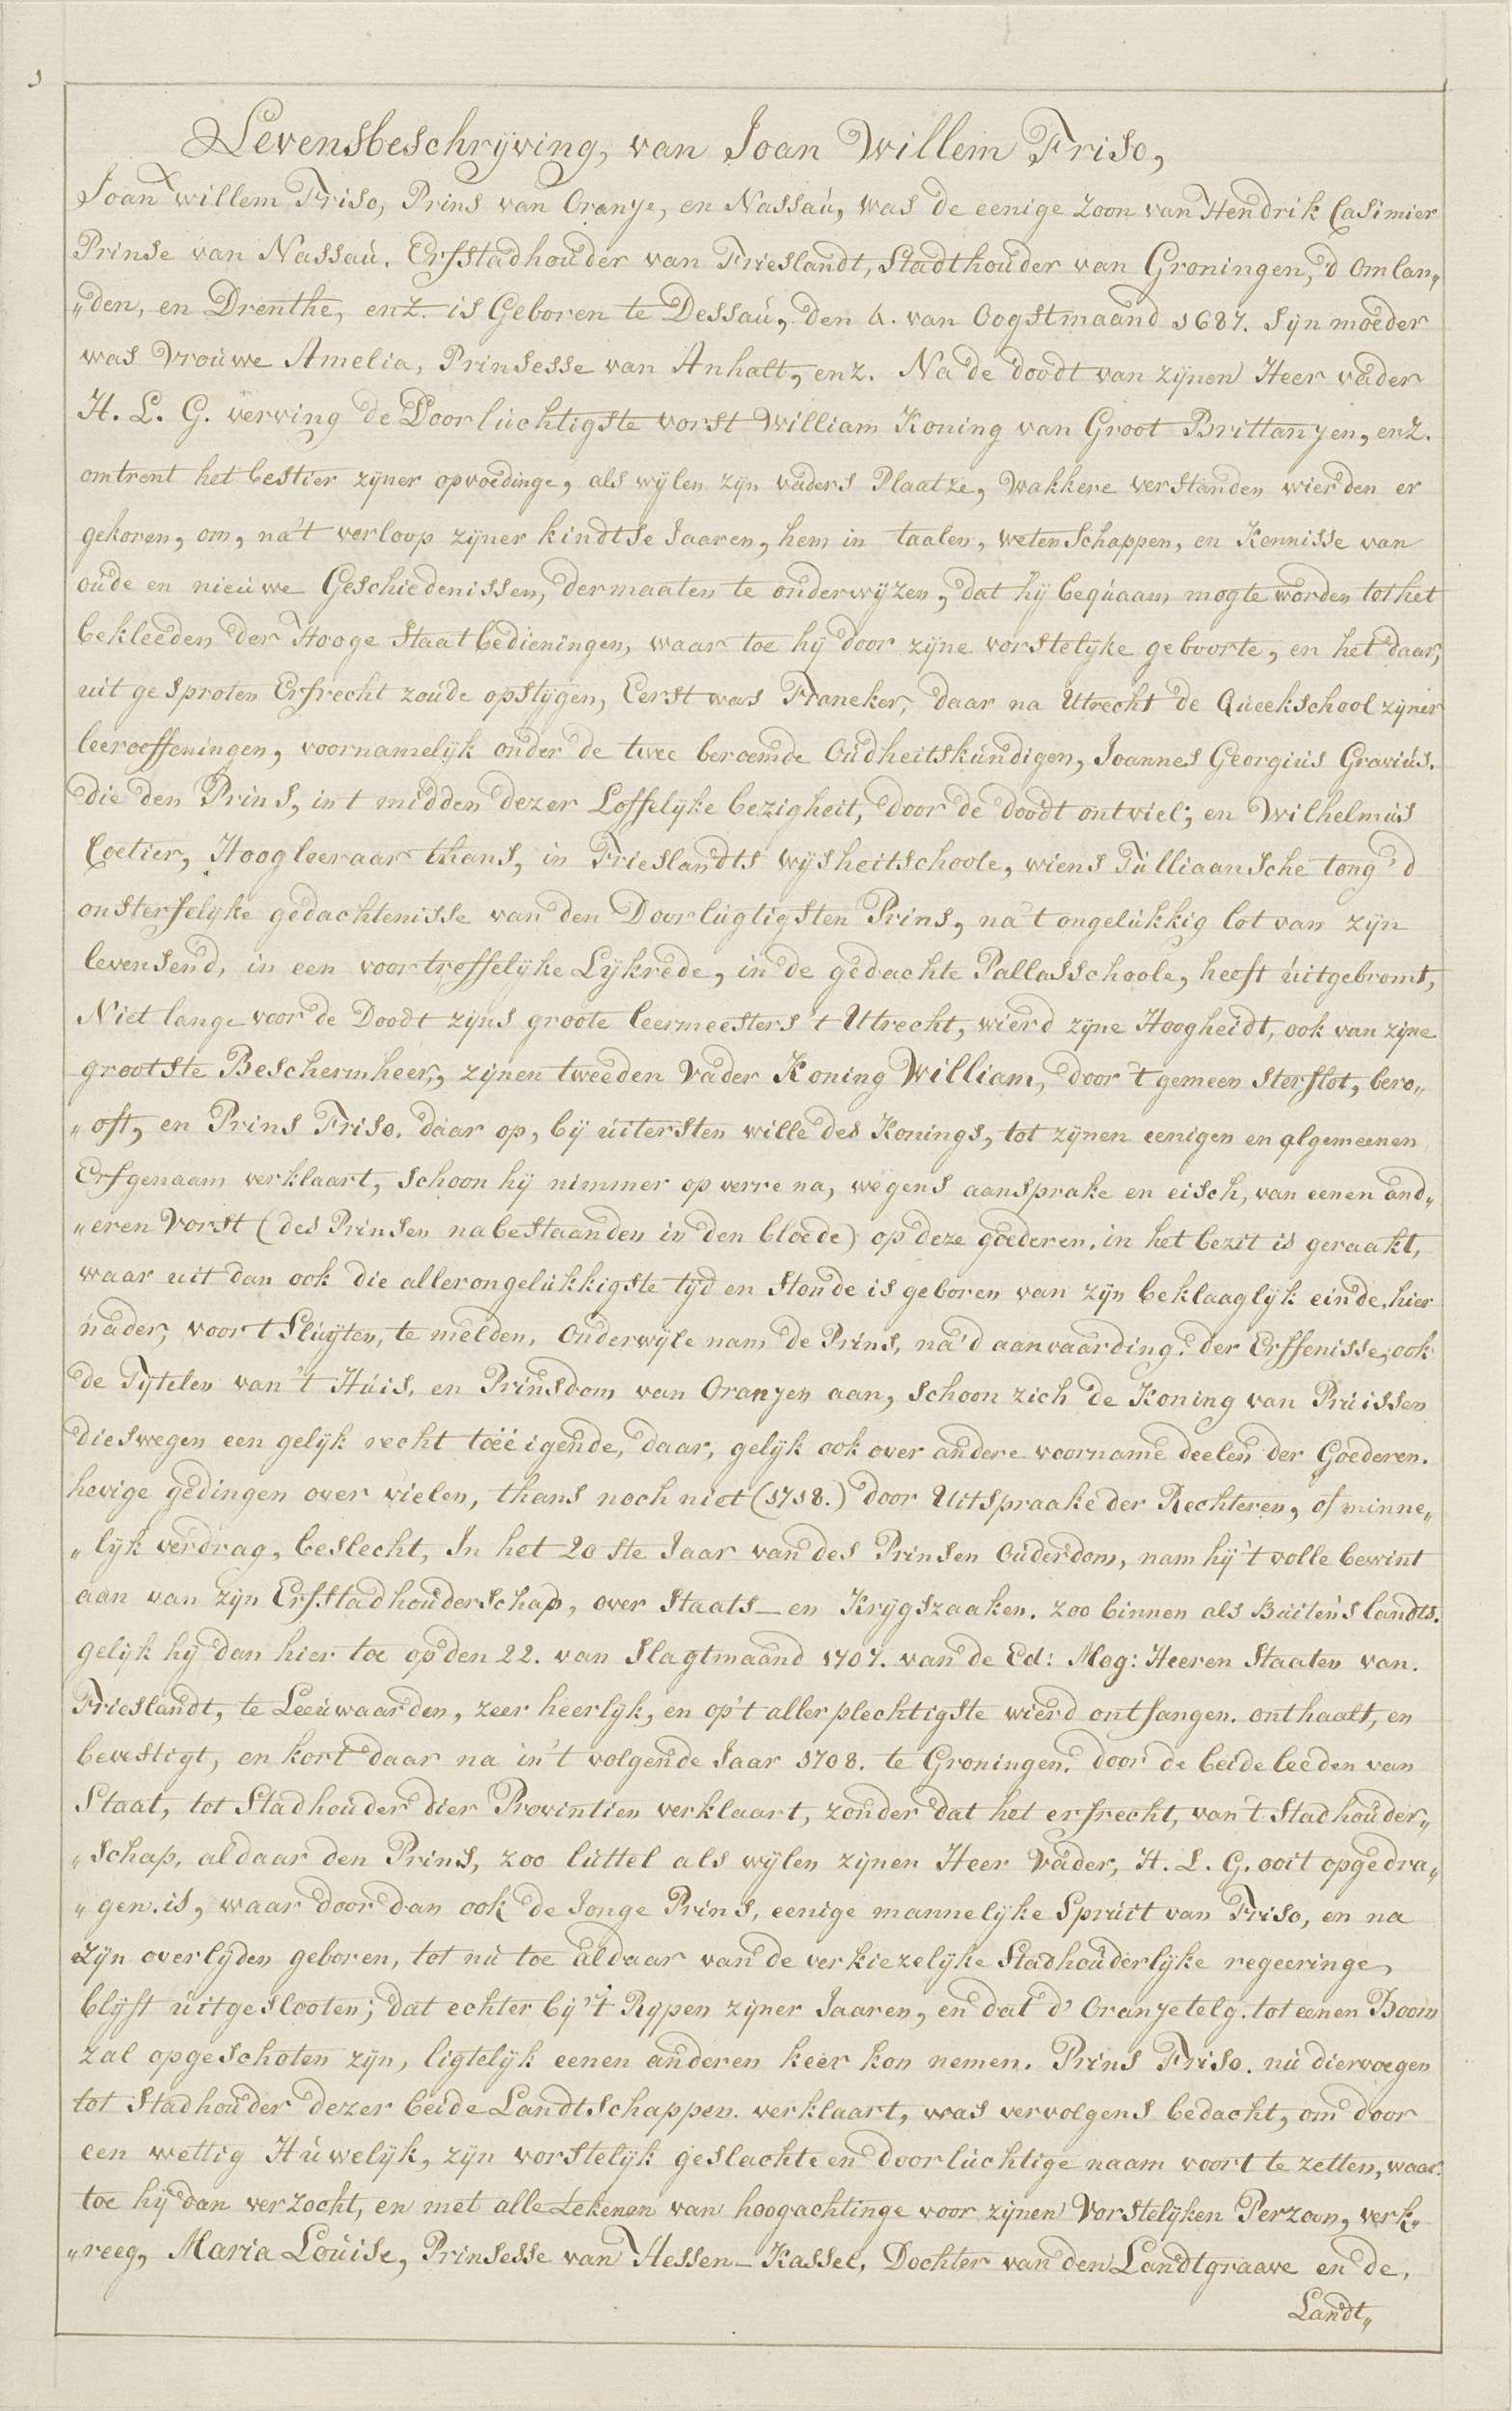 1
Levensbeschrijving, van Joan Willem Friso,
Joan willem Friso, Prins van Oranje, en Nassau, was de eenige Zoon van Hendrik Casimier
Prinse van Nassau. Erfstadhouder van Frieslandt, Stadthouder van Groningen, 'd Omlan„
„den, en Drenthe, enz. is Geboren te Dessau, den 4. van Oogstmaand 1687. Sijn moeder
was Vrouwe Amelia, Prinsesse van Anhalt, enz. Na de doodt van zijnen Heer vader
H. L. G. verving de Doorluchtigste vorst William Koning van Groot Brittanjen, enz.
omtrent het bestier zijner opvoedinge, als wijlen zijn vaders Plaatze, Wakkere verstanden wierden er
gekoren, om, na't verloop zijner kindtse Jaaren, hem in taalen, wetenschappen, en Kennisse van
oude en nieuwe Geschiedenissen, dermaaten te onderwijzen, dat hij bequaam mogte worden tot het
bekleeden der Hooge Staatbedieningen, waar toe hij door zijne vorstelijke geboorte, en het daar,
uit gesproten Erfrecht zoude opstijgen, Eerst was Franeker, daar na Utrecht de Queekschool zijner
leeroeffeningen, voornamelijk onder de twee beroemde Oudheitskundigen, Joannes Georgius Gravius.
die den Prins, in t midden dezer Loffelijke bezigheit, door de doodt ontviel; en Wilhelmus
Coetier, Hoogleeraar thans, in Frieslandts wijsheitschoole, wiens Tulliaansche tong 'd
onsterfelijke gedachtenisse van den Doorlugtigsten Prins, na 't ongelukkig lot van zijn
levensend, in een voortreffelijke Lijkrede, in de gedachte Pallasschoole, heeft uitgebromt,
Niet lange voor de Doodt zijns groote leermeesters 't Utrecht, wierd zijne Hoogheidt, ook van zijne
grootste Beschermheer, zijnen tweeden Vader Koning William, door 't gemeen Sterflot, bero„
„oft, en Prins Friso. daar op, bij uitersten wille des Konings, tot zijnen eenigen en algemeenen
Erfgenaam verklaart, schoon hij nimmer op verre na, wegens aansprake en eisch, van eenen and„
„eren Vorst (des Prinsen nabestaanden in den bloede) op deze goederen. in het bezit is geraakt,
waar uit dan ook die allerongelukkigste tijd en Stonde is geboren van zijn beklaaglijk einde, hier
nader, voor t Sluijten, te melden. Onderwijle nam de Prins, na 'd aanvaarding. der Erffenisse, ook
de Tijtelen van 't Huis, en Prinsdom van Oranjen aan, schoon zich de Koning van Pruissen
dieswegen een gelijk recht toeëigende, daar, gelijk ook over andere voorname deelen der Goederen.
hevige gedingen over vielen, thans noch niet (1718.) door Uitspraake der Rechteren, of minne„
„lijk verdrag, beslecht, In het 20 ste Jaar van des Prinsen Ouderdom, nam hij 't volle bewint
aan van zijn Erfstadhouderschap, over Staats_en Krijgszaaken. zoo binnen als Buitens landts.
gelijk hij dan hier toe op den 22. van Slagtmaand 1707. van de Ed: Mog: Heeren Staaten van.
Frieslandt, te Leeuwaarden, zeer heerlijk, en op't aller plechtigste wierd ontfangen. onthaalt, en
bevestigt, en kort daar na in't volgende Jaar 1708. te Groningen. door de beide leeden van
Staat, tot Stadhouder dier Provintien verklaart, zonder dat het erfrecht, van't Stadhouder„
„schap, aldaar den Prins, zoo luttel als wijlen zijnen Heer Vader, H. L. G. ooit opgedra„
„gen. is, waar door dan ook de Jonge Prins, eenige mannelijke Spruit van Friso, en na
zijn overlijden geboren, tot nu toe aldaar van de verkiezelijke Stadhouderlijke regeeringe,
blijft uitgeslooten; dat echter bij 't Rijpen zijner Jaaren, en dat d' Oranjetelg. tot eenen Boom
zal opgeschoten zijn, ligtelijk eenen anderen keer kon nemen. Prins Friso. nu diervoegen
tot Stadhouder dezer beide Landtschappen. verklaart, was vervolgens bedacht, om door
een wettig Huwelijk, zijn vorstelijk geslacht en doorluchtige naam voort te zetten, waar.
toe hij dan verzocht, en met alle tekenen van hoogachtinge voor zijnen Vorstelijken Perzoon, verk„
„reeg, Maria Louise, Prinsesse van Hessen_Kassel, Dochter van den Landtgraave en de,
Landt„